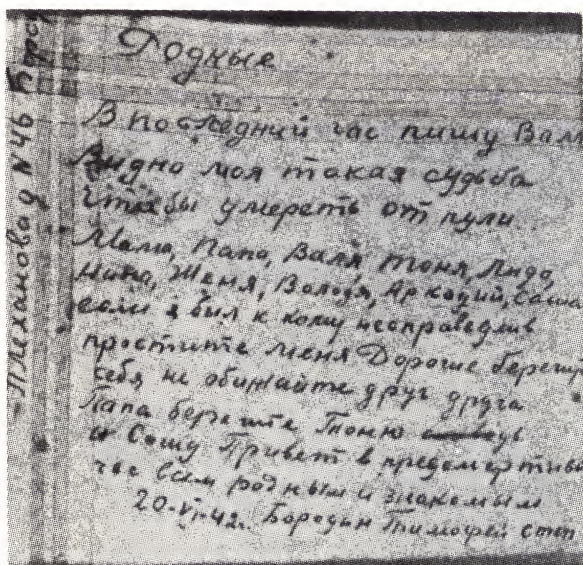 Родные
В последний час пишу Вам
Видно моя такая судьба
Чтобы умереть от пули.
Мама, Папа, Валя Тоня, Лида,
Нина, Женя, Володя, Аркадий, Саша
если я был к кому несправедлив
простите меня Дорогие берегит
себя, не обижайте друг друга
Папа берегите Тоню
и Сашу Привет в предсмертный
час всем родным и знакомым
20-VI-42г. Бородин Тимофей Степ
Плеханова д №46